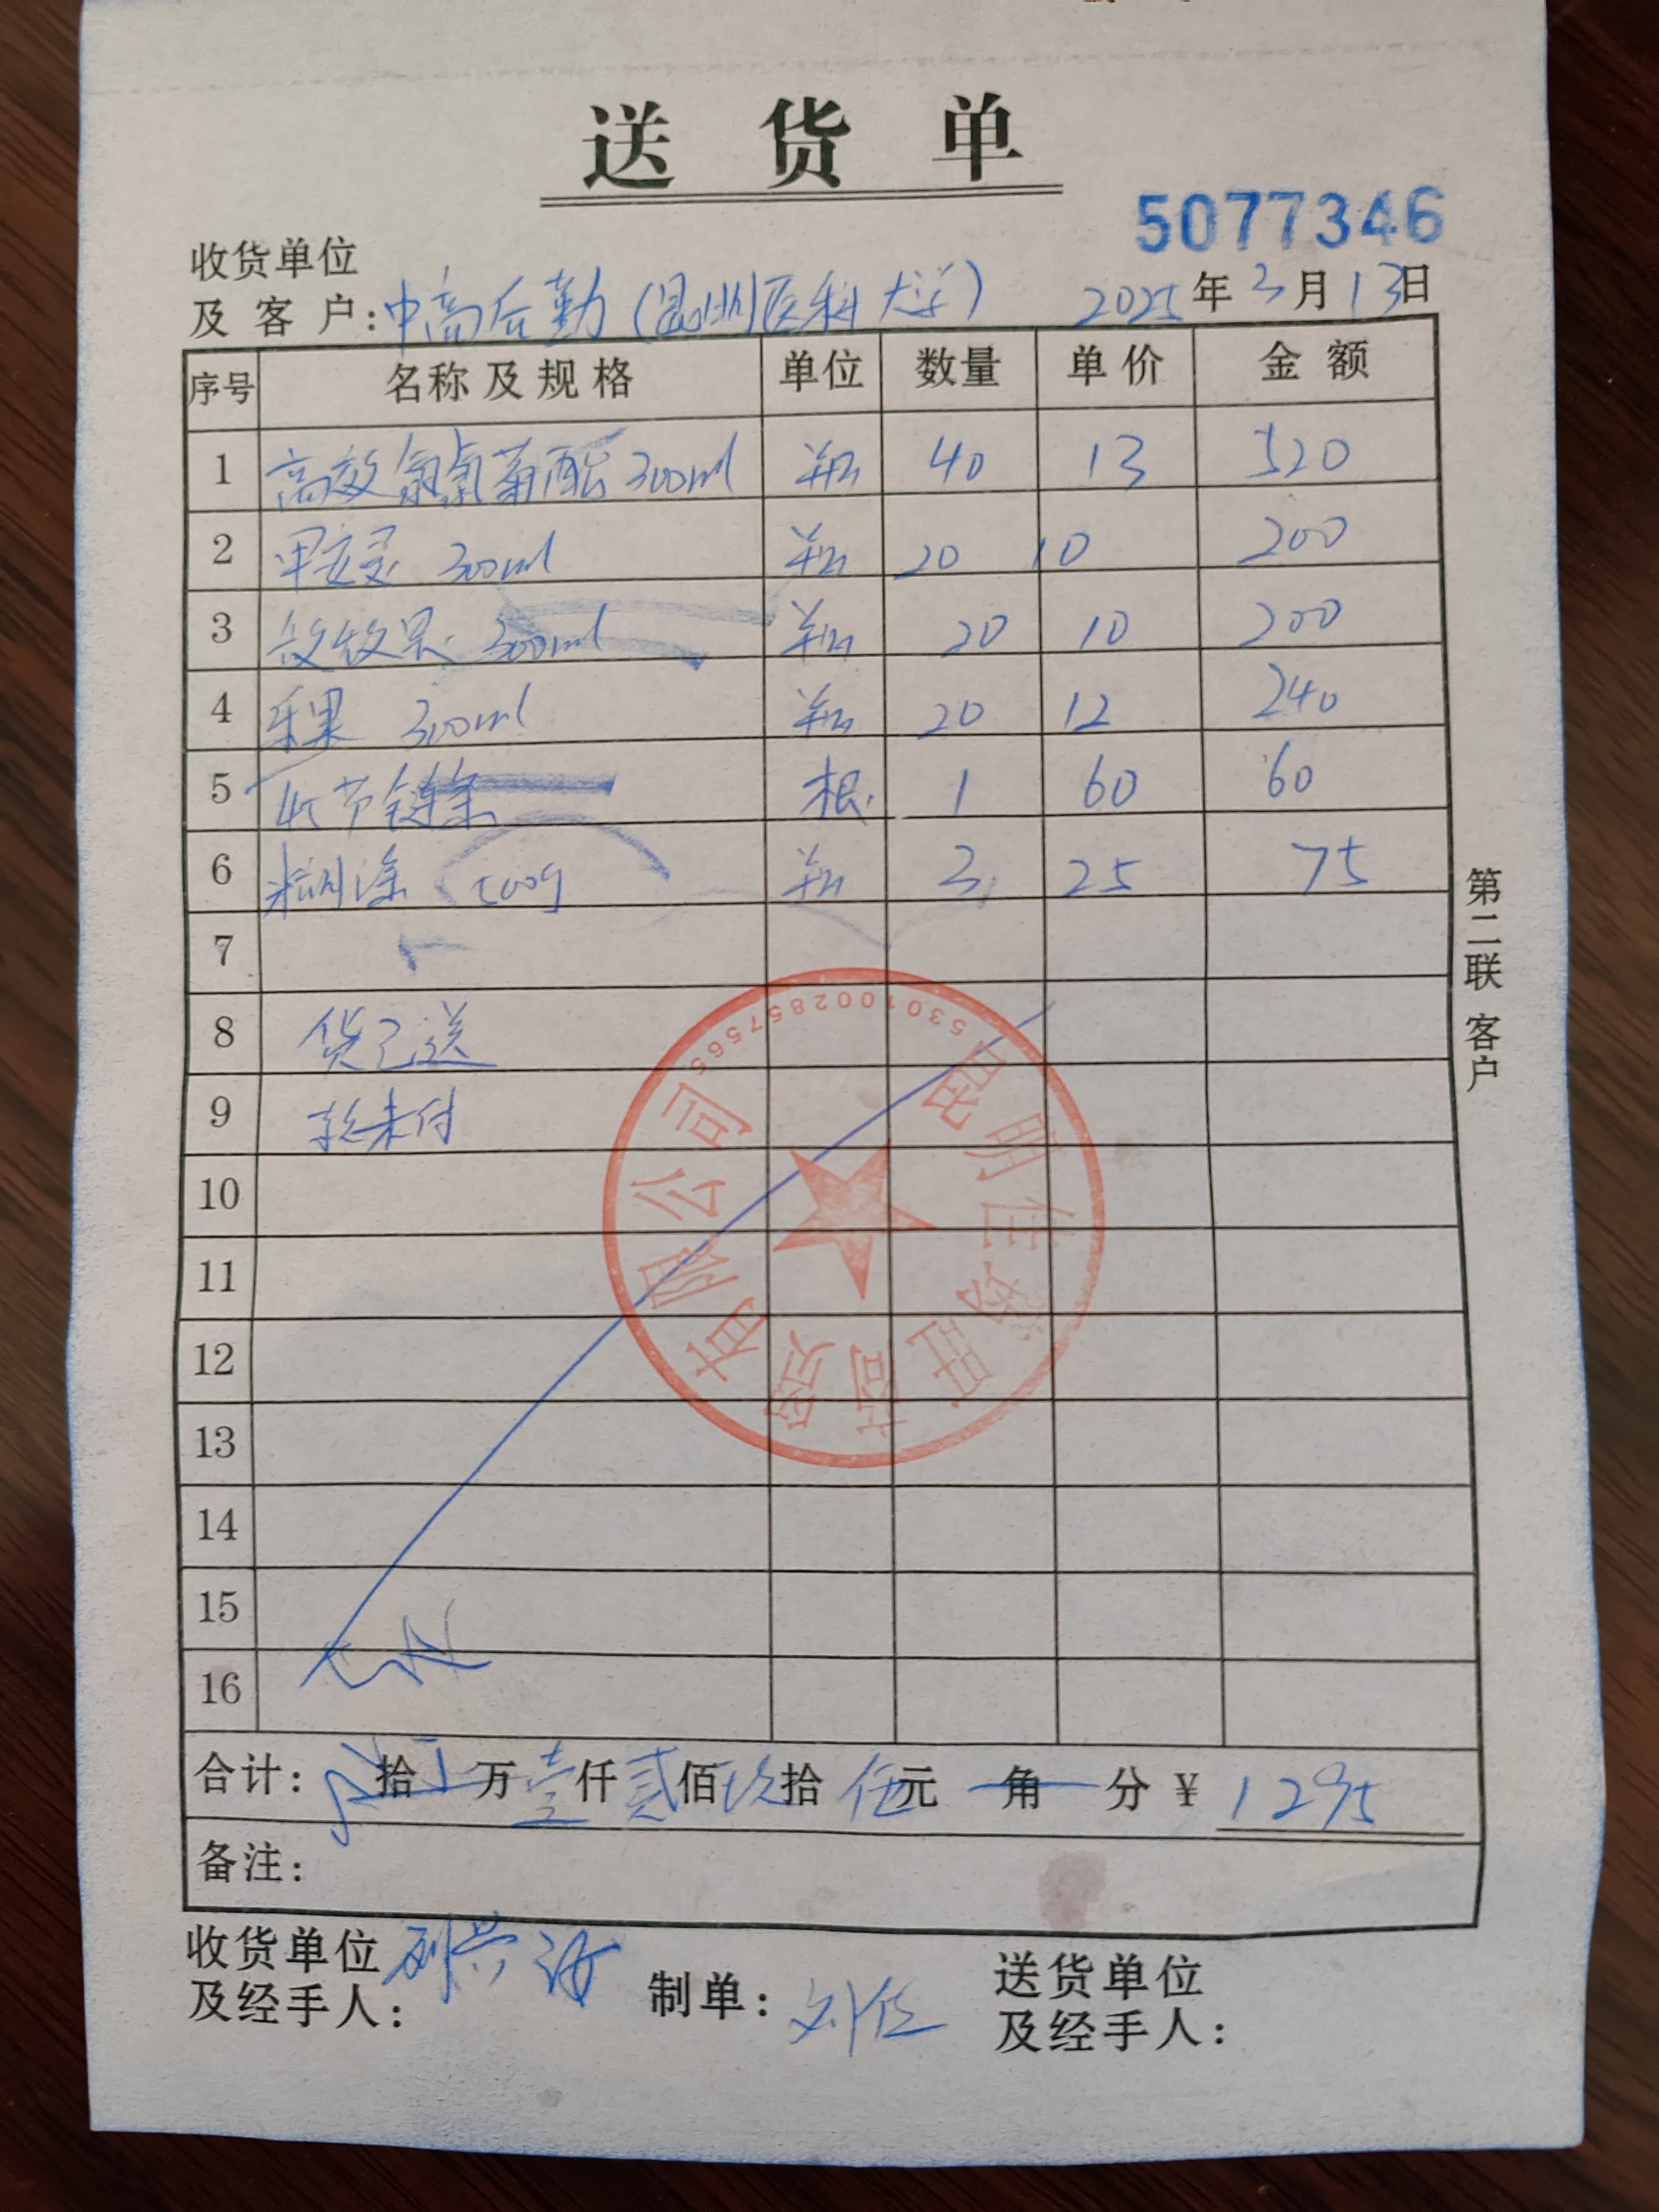 送货单
5077346
收货单位
及客户:中高后勤(昆明医科大学) 2025年3月13日
序号 名称及规格 单位 数量 单价 金额
1 高效氯氰菊酯 300ml 瓶 40 13 520
2 300ml 瓶 20 10 200
3 300ml 瓶 20 10 200
4 乐果 300ml 瓶 20 12 240
5 链条 根 1 60 60
6 糊涂 500g 瓶 3 25 75
7
8 货已送
9 款未付
10
11
12
13
14
15
16
合计: 拾 万壹仟贰佰玖拾伍元 角 分 ¥ 1295
备注:
收货单位
及经手人:
制单:
送货单位
及经手人:
第二联 客户
商贸有限公司
5301002857565